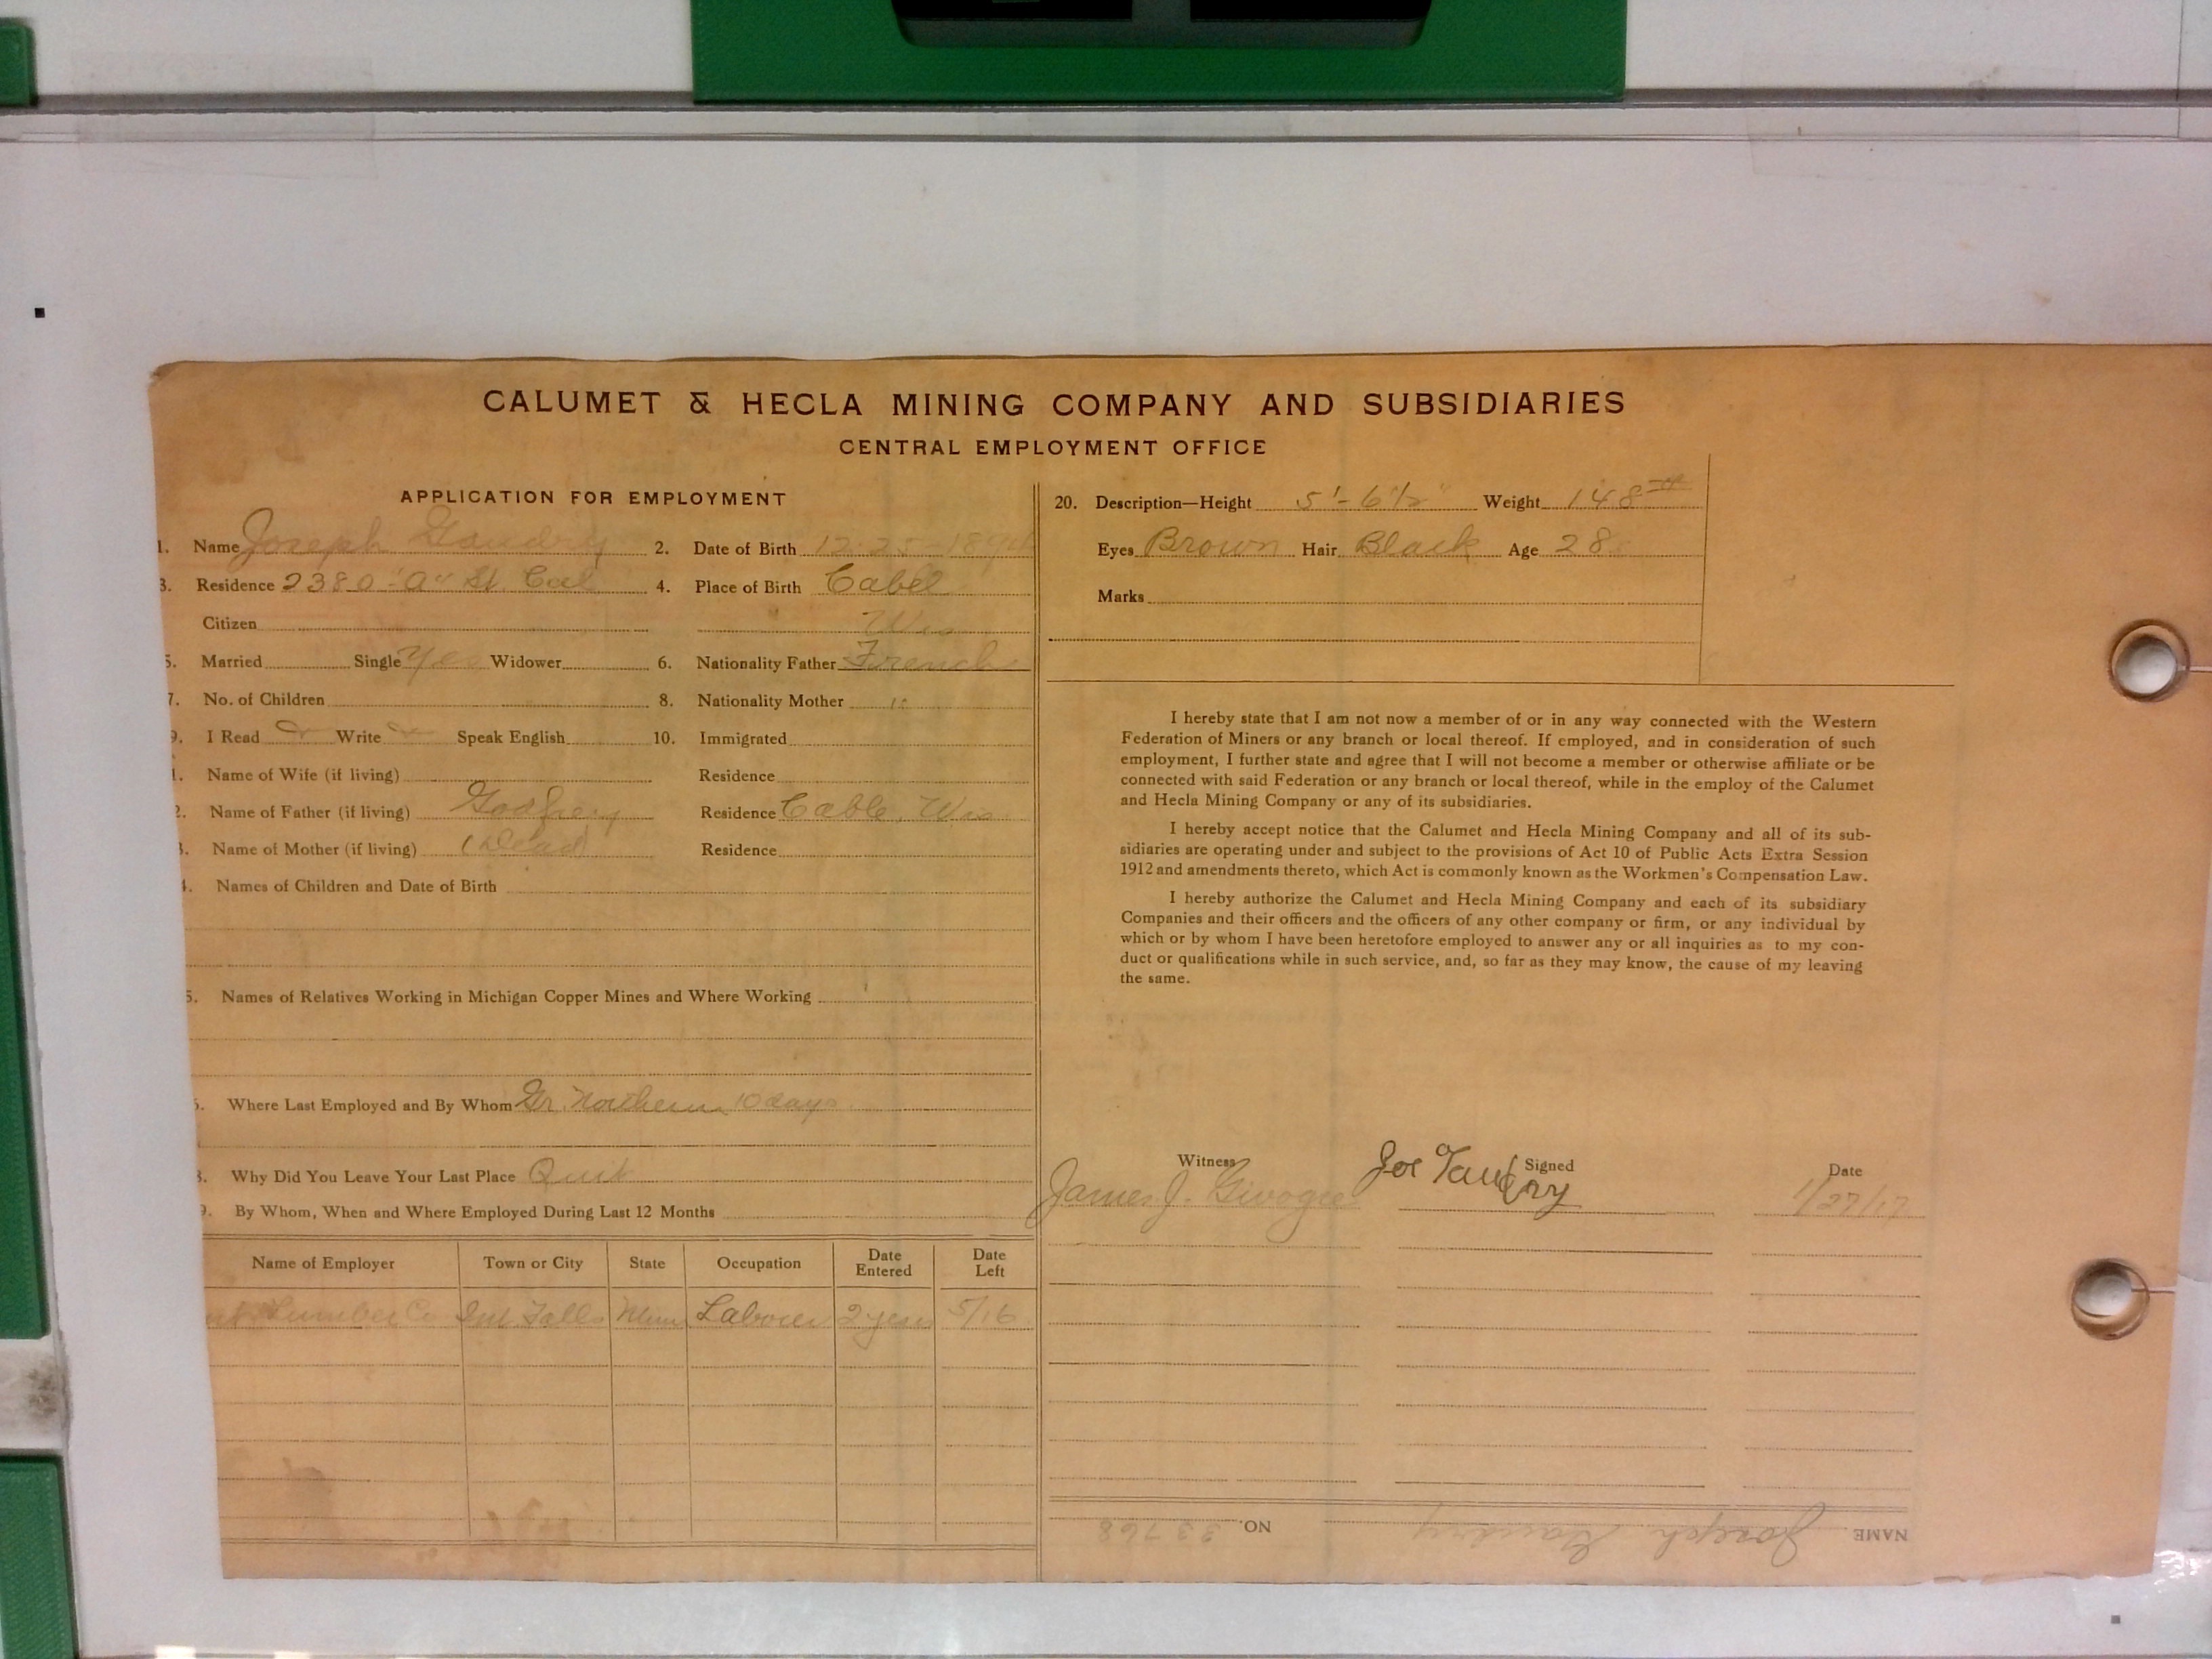 CALUMET & HECLA MINING COMPANY AND SUBSIDIARIES
CENTRAL EMPLOYMENT OFFICE
APPLICATION FOR EMPLOYMENT
1. Name Joseph Gaudry 2. Date of Birth 12-25-1894
3. Residence 2380 "A" St. Cal 4. Place of Birth Cabel
Citizen Wis
5. Married Single Yes Widower 6. Nationality Father French
7. No. of Children 8. Nationality Mother "
9. I Read Write Speak English 10. Immigrated
1. Name of Wife (if living) Residence
2. Name of Father (if living) Godfrey Residence Cable, Wis
3. Name of Mother (if living) (Dead) Residence
4. Names of Children and Date of Birth
5. Names of Relatives Working in Michigan Copper Mines and Where Working
6. Where Last Employed and By Whom Gr. Northern 10 days
8. Why Did You Leave Your Last Place Quit
9. By Whom, When and Where Employed During Last 12 Months
Name of Employer Town or City State Occupation Date Entered Date Left
Lumber Co Int Falls Minn Laborer 2 years 5/16
20. Description—Height 5'-6½" Weight 148
Eyes Brown Hair Black Age 28
Marks
I hereby state that I am not now a member of or in any way connected with the Western
Federation of Miners or any branch or local thereof. If employed, and in consideration of such
employment, I further state and agree that I will not become a member or otherwise affiliate or be
connected with said Federation or any branch or local thereof, while in the employ of the Calumet
and Hecla Mining Company or any of its subsidiaries.
I hereby accept notice that the Calumet and Hecla Mining Company and all of its sub-
sidiaries are operating under and subject to the provisions of Act 10 of Public Acts Extra Session
1912 and amendments thereto, which Act is commonly known as the Workmen's Compensation Law.
I hereby authorize the Calumet and Hecla Mining Company and each of its subsidiary
Companies and their officers and the officers of any other company or firm, or any individual by
which or by whom I have been heretofore employed to answer any or all inquiries as to my con-
duct or qualifications while in such service, and, so far as they may know, the cause of my leaving
the same.
Witness Signed Date
James J. Joe Gaudry 1/27/17
NAME Joseph Gaudry NO. 33768